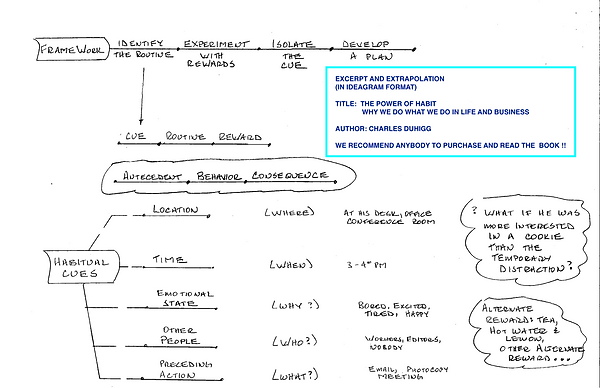 FRAMEWORK
IDENTIFY THE ROUTINE
EXPERIMENT WITH REWARDS
ISOLATE THE CUE
DEVELOP A PLAN
EXCERPT AND EXTRAPOLATION
(IN IDEAGRAM FORMAT)
TITLE: THE POWER OF HABIT
WHY WE DO WHAT WE DO IN LIFE AND BUSINESS
AUTHOR: CHARLES DUHIGG
WE RECOMMEND ANYBODY TO PURCHASE AND READ THE BOOK !!
CUE ROUTINE REWARD
ANTECEDENT BEHAVIOR CONSEQUENCE
HABITUAL
CUES
LOCATION (WHERE) AT HIS DESK, OFFICE
CONFERENCE ROOM
TIME (WHEN) 3-4 PM
EMOTIONAL
STATE (WHY?) BORED, EXCITED,
TIRED, HAPPY
OTHER
PEOPLE (WHO?) WORKERS, EDITORS,
NOBODY
PRECEDING
ACTION (WHAT?) EMAIL, PHOTOCOPY
MEETING
? WHAT IF HE WAS
MORE INTERESTED
IN A COOKIE
THAN THE
TEMPORARY
DISTRACTION?
ALTERNATE
REWARD: TEA,
HOT WATER &
LEMON,
OTHER ALTERNATE
REWARD...